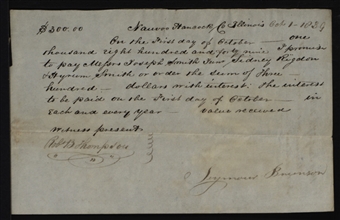 $300.00 Nauvoo Hancock Co Illinois Oct 1- 1839
On the First day of October — one
thousand eight hundred and forty nine I promise
to pay Messrs Joseph Smith Junr, Sidney Rigdon
& Hyrum Smith or order the Sum of Three
hundred — dollars with interest. The interest
to be paid on the First day of October — in
each and every year — value received
witness present
Robt B Thompson
Seymour Brunson